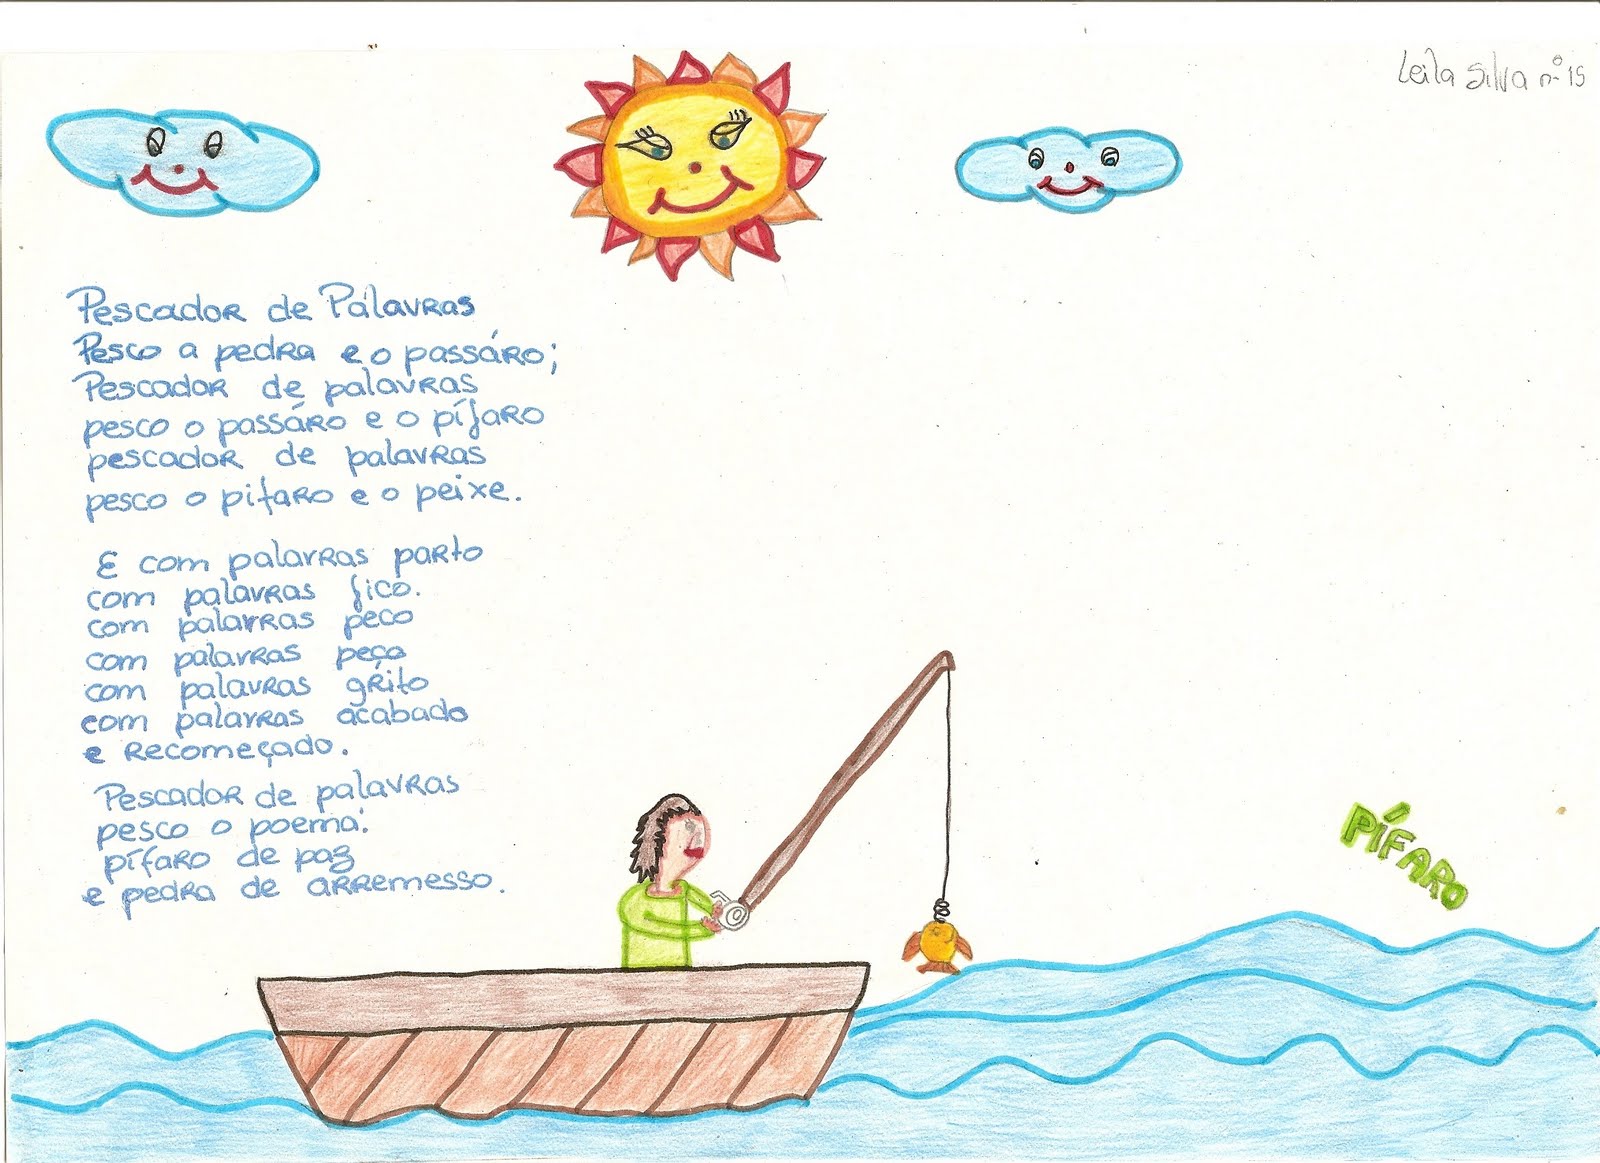 Leila Silva nº 15
Pescador de Palavras
Pesco a pedra e o passáro;
Pescador de palavras
pesco o passáro e o pífaro
pescador de palavras
pesco o pifaro e o peixe.
E com palavras parto
com palavras fico.
com palavras peco
com palavras peço
com palavras grito
com palavras acabado
e recomeçado.
Pescador de palavras
pesco o poema:
pífaro de paz
e pedra de arremesso.
PÍFARO